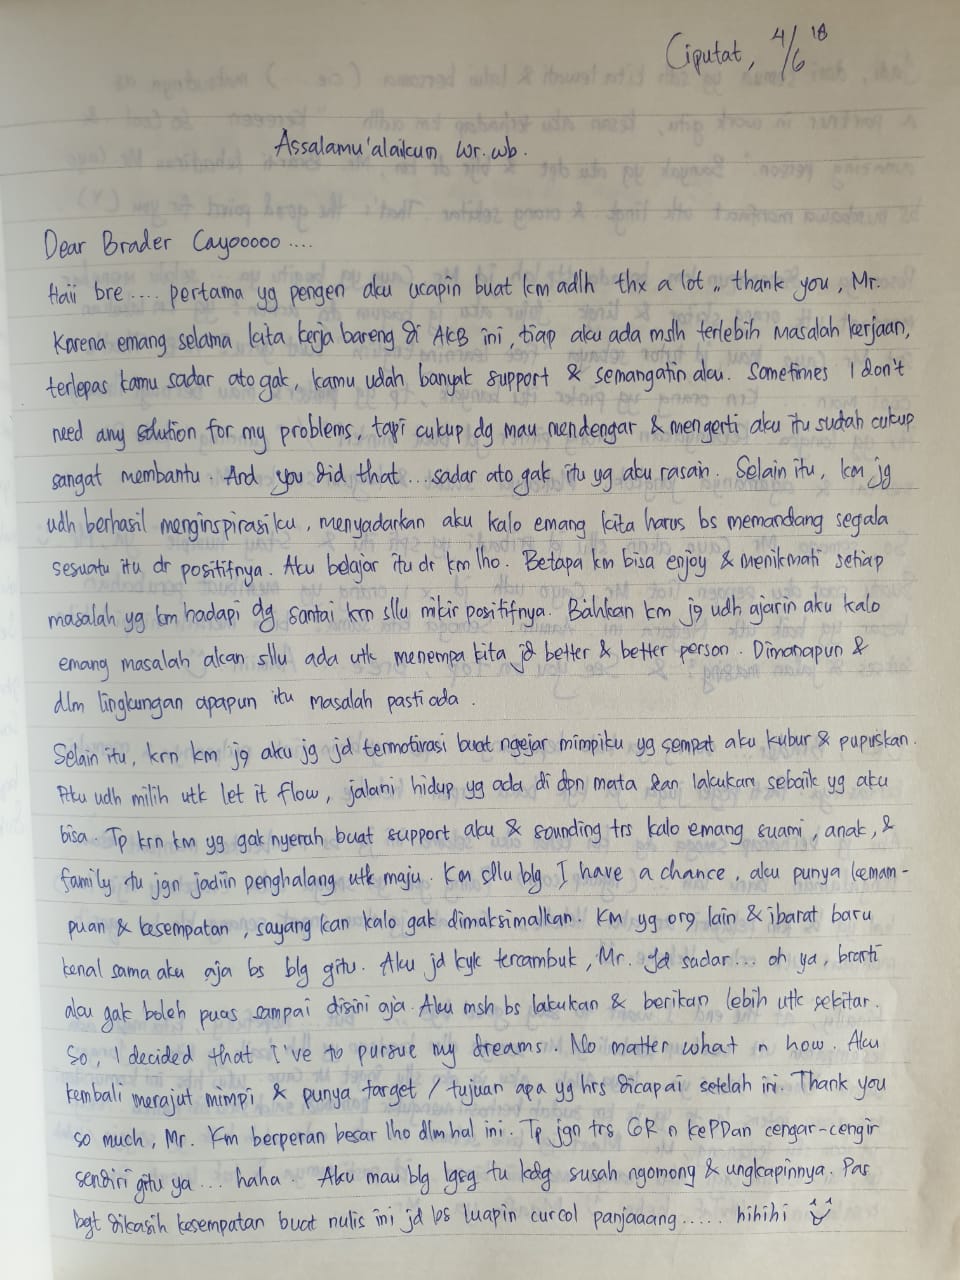 Ciputat, 4/6 18
Assalamu'alaikum wr. wb.
Dear Brader Cayooooo ....
Haii bre .... pertama yg pengen aku ucapin buat km adlh thx a lot ,, thank you, Mr.
Karena emang selama kita kerja bareng di AKB ini, tiap aku ada mslh terlebih masalah kerjaan,
terlepas kamu sadar ato gak, kamu udah banyak support & semangatin aku. Sometimes I don't
need any solution for my problems, tapi cukup dg mau mendengar & mengerti aku itu sudah cukup
sangat membantu. And you did that... sadar ato gak itu yg aku rasain. Selain itu, km jg
udh berhasil menginspirasiku, menyadarkan aku kalo emang kita harus bs memandang segala
sesuatu itu dr positifnya. Aku belajar itu dr km lho. Betapa km bisa enjoy & menikmati setiap
masalah yg km hadapi dg santai krn sllu mikir positifnya. Bahkan km jg udh ajarin aku kalo
emang masalah akan sllu ada utk menempa kita jd better & better person. Dimanapun &
dlm lingkungan apapun itu masalah pasti ada.
Selain itu, krn km jg aku jg jd termotivasi buat ngejar mimpiku yg sempat aku kubur & pupuskan.
Aku udh milih utk let it flow, jalani hidup yg ada di dpn mata dan lakukan sebaik yg aku
bisa. Tp krn km yg gak nyerah buat support aku & sounding trs kalo emang suami, anak, &
family tu jgn jadiin penghalang utk maju. Km sllu blg I have a chance, aku punya kemam-
puan & kesempatan, sayang kan kalo gak dimaksimalkan. Km yg org lain & ibarat baru
kenal sama aku aja bs blg gitu. Aku jd kyk tercambuk, Mr. Jd sadar... oh ya, brarti
aku gak boleh puas sampai disini aja. Aku msh bs lakukan & berikan lebih utk sekitar.
So, I decided that I've to pursue my dreams. No matter what n how. Aku
kembali merajut mimpi & punya target / tujuan apa yg hrs dicapai setelah ini. Thank you
so much, Mr. Km berperan besar lho dlm hal ini. Tp jgn trs GR n kePDan cengar-cengir
sendiri gitu ya ... haha. Aku mau blg lgsg tu kdg susah ngomong & ungkapinnya. Pas
bgt dikasih kesempatan buat nulis ini jd bs luapin curcol panjaaang ..... hihihi ^^